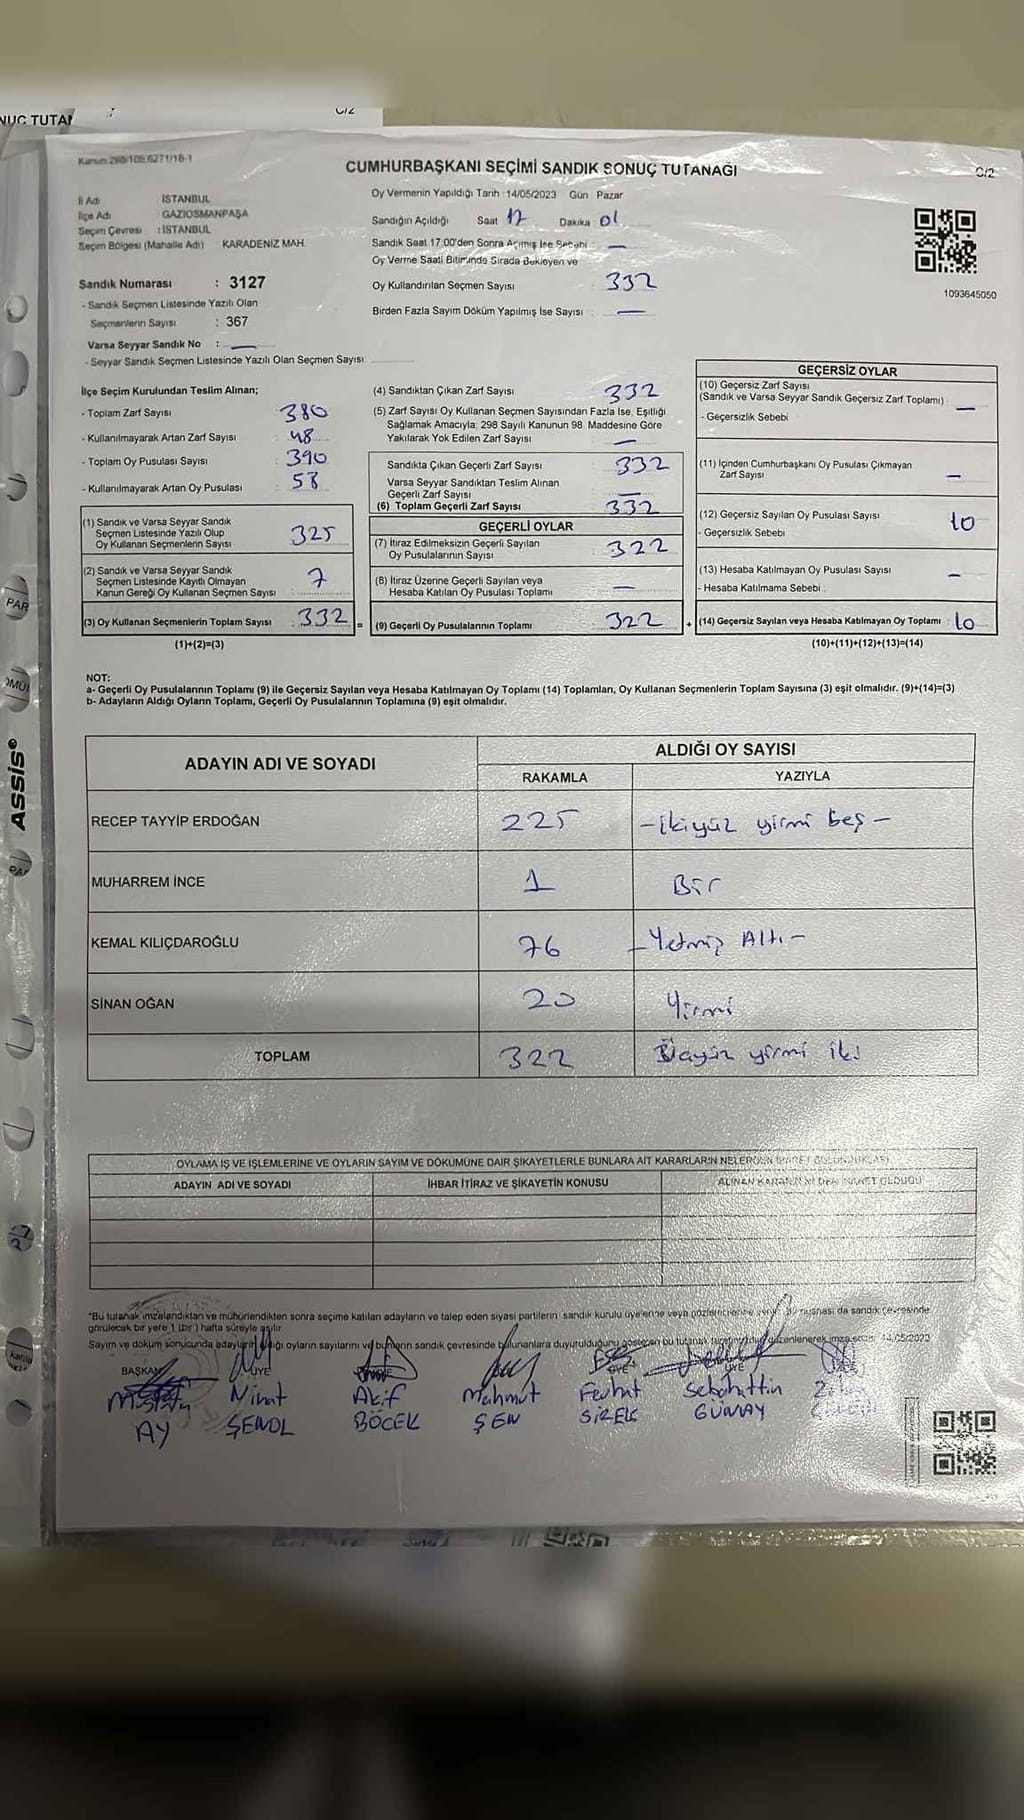 NUÇ TUTA
C/2
Kanun 298/105;6271/18-1
CUMHURBAŞKANI SEÇİMİ SANDIK SONUÇ TUTANAĞI
C/2
İl Adı : İSTANBUL
İlçe Adı GAZİOSMANPAŞA
Seçim Çevresi : İSTANBUL
Seçim Bölgesi (Mahalle Adı) KARADENİZ MAH.
Oy Vermenin Yapıldığı Tarih :14/05/2023 Gün Pazar
Sandığın Açıldığı Saat 17 Dakika 01
Sandık Saat 17:00'den Sonra Açılmış İse Sebebi : —
Oy Verme Saati Bitiminde Sırada Bekleyen ve
Oy Kullandırılan Seçmen Sayısı 332
Birden Fazla Sayım Döküm Yapılmış İse Sayısı : —
1093645050
Sandık Numarası : 3127
- Sandık Seçmen Listesinde Yazılı Olan
Seçmenlerin Sayısı : 367
Varsa Seyyar Sandık No : —
- Seyyar Sandık Seçmen Listesinde Yazılı Olan Seçmen Sayısı
İlçe Seçim Kurulundan Teslim Alınan;
- Toplam Zarf Sayısı : 380
- Kullanılmayarak Artan Zarf Sayısı : 48
- Toplam Oy Pusulası Sayısı : 390
- Kullanılmayarak Artan Oy Pusulası : 58
(1) Sandık ve Varsa Seyyar Sandık
Seçmen Listesinde Yazılı Olup
Oy Kullanan Seçmenlerin Sayısı : 325
(2) Sandık ve Varsa Seyyar Sandık
Seçmen Listesinde Kayıtlı Olmayan
Kanun Gereği Oy Kullanan Seçmen Sayısı : 7
(3) Oy Kullanan Seçmenlerin Toplam Sayısı : 332 =
(1)+(2)=(3)
(4) Sandıktan Çıkan Zarf Sayısı 332
(5) Zarf Sayısı Oy Kullanan Seçmen Sayısından Fazla İse, Eşitliği
Sağlamak Amacıyla; 298 Sayılı Kanunun 98. Maddesine Göre
Yakılarak Yok Edilen Zarf Sayısı : —
Sandıkta Çıkan Geçerli Zarf Sayısı : 332
Varsa Seyyar Sandıktan Teslim Alınan
Geçerli Zarf Sayısı : —
(6) Toplam Geçerli Zarf Sayısı : 332
GEÇERLİ OYLAR
(7) İtiraz Edilmeksizin Geçerli Sayılan
Oy Pusulalarının Sayısı : 322
(8) İtiraz Üzerine Geçerli Sayılan veya
Hesaba Katılan Oy Pusulası Toplamı : —
(9) Geçerli Oy Pusulalarının Toplamı : 322 +
GEÇERSİZ OYLAR
(10) Geçersiz Zarf Sayısı
(Sandık ve Varsa Seyyar Sandık Geçersiz Zarf Toplamı) : —
- Geçersizlik Sebebi
(11) İçinden Cumhurbaşkanı Oy Pusulası Çıkmayan
Zarf Sayısı : —
(12) Geçersiz Sayılan Oy Pusulası Sayısı : 10
- Geçersizlik Sebebi
(13) Hesaba Katılmayan Oy Pusulası Sayısı : —
- Hesaba Katılmama Sebebi :
(14) Geçersiz Sayılan veya Hesaba Katılmayan Oy Toplamı : 10
(10)+(11)+(12)+(13)=(14)
NOT:
a- Geçerli Oy Pusulalarının Toplamı (9) ile Geçersiz Sayılan veya Hesaba Katılmayan Oy Toplamı (14) Toplamları, Oy Kullanan Seçmenlerin Toplam Sayısına (3) eşit olmalıdır. (9)+(14)=(3)
b- Adayların Aldığı Oyların Toplamı, Geçerli Oy Pusulalarının Toplamına (9) eşit olmalıdır.
ADAYIN ADI VE SOYADI ALDIĞI OY SAYISI
RAKAMLA YAZIYLA
RECEP TAYYİP ERDOĞAN 225 -ikiyüz yirmi beş-
MUHARREM İNCE 1 Bir
KEMAL KILIÇDAROĞLU 76 -Yetmiş Altı-
SİNAN OĞAN 20 Yirmi
TOPLAM 322 Üçyüz yirmi iki
OYLAMA İŞ VE İŞLEMLERİNE VE OYLARIN SAYIM VE DÖKÜMÜNE DAİR ŞİKAYETLERLE BUNLARA AİT KARARLARIN NELERDEN İBARET OLDUĞU
ADAYIN ADI VE SOYADI İHBAR İTİRAZ VE ŞİKAYETİN KONUSU ALINAN KARARIN NEDEN İBARET OLDUĞU
*Bu tutanak imzalandıktan ve mühürlendikten sonra seçime katılan adayların ve talep eden siyasi partilerin sandık kurulu üyelerine veya müşahitlerine verilir. Bir nüshası da sandık çevresinde
görülecek bir yere 1 (bir) hafta süreyle asılır
Sayım ve döküm sonucunda adayların aldığı oyların sayılarını ve bunların sandık çevresinde bulunanlara duyurulduğunu gösteren bu tutanak düzenlenerek imza 14/05/2023
BAŞKAN ÜYE ÜYE ÜYE
Mustafa Nihat Akif Mahmut Ferhat Sebahittin
AY ŞENOL BÖCEK ŞEN GÜNAY
ASSİS®
PAR